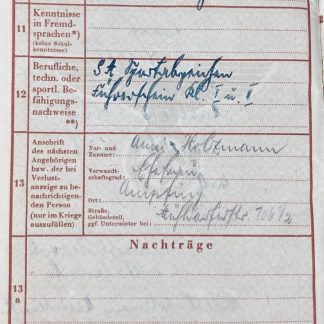 11
Kenntnisse
in Fremd-
sprachen*)
(keine Schul-
kenntnisse)
12
Berufliche,
techn. oder
sportl. Be-
fähigungs-
nachweise
**)
S.A. Sportabzeichen
Führerschein Kl. I u. II
13
Anschrift
des nächsten
Angehörigen
bzw. der bei
Verlust-
anzeige zu be-
nachrichtigen-
den Person
(nur im Kriege
auszufüllen)
Vor- und
Zuname:
Anni Holzmann
Verwandt-
schaftsgrad:
Ehefrau
Ort:
Ampfing
Straße,
Gebäudeteil,
ggf. Untermieter bei:
106 1/2
Nachträge
13
a